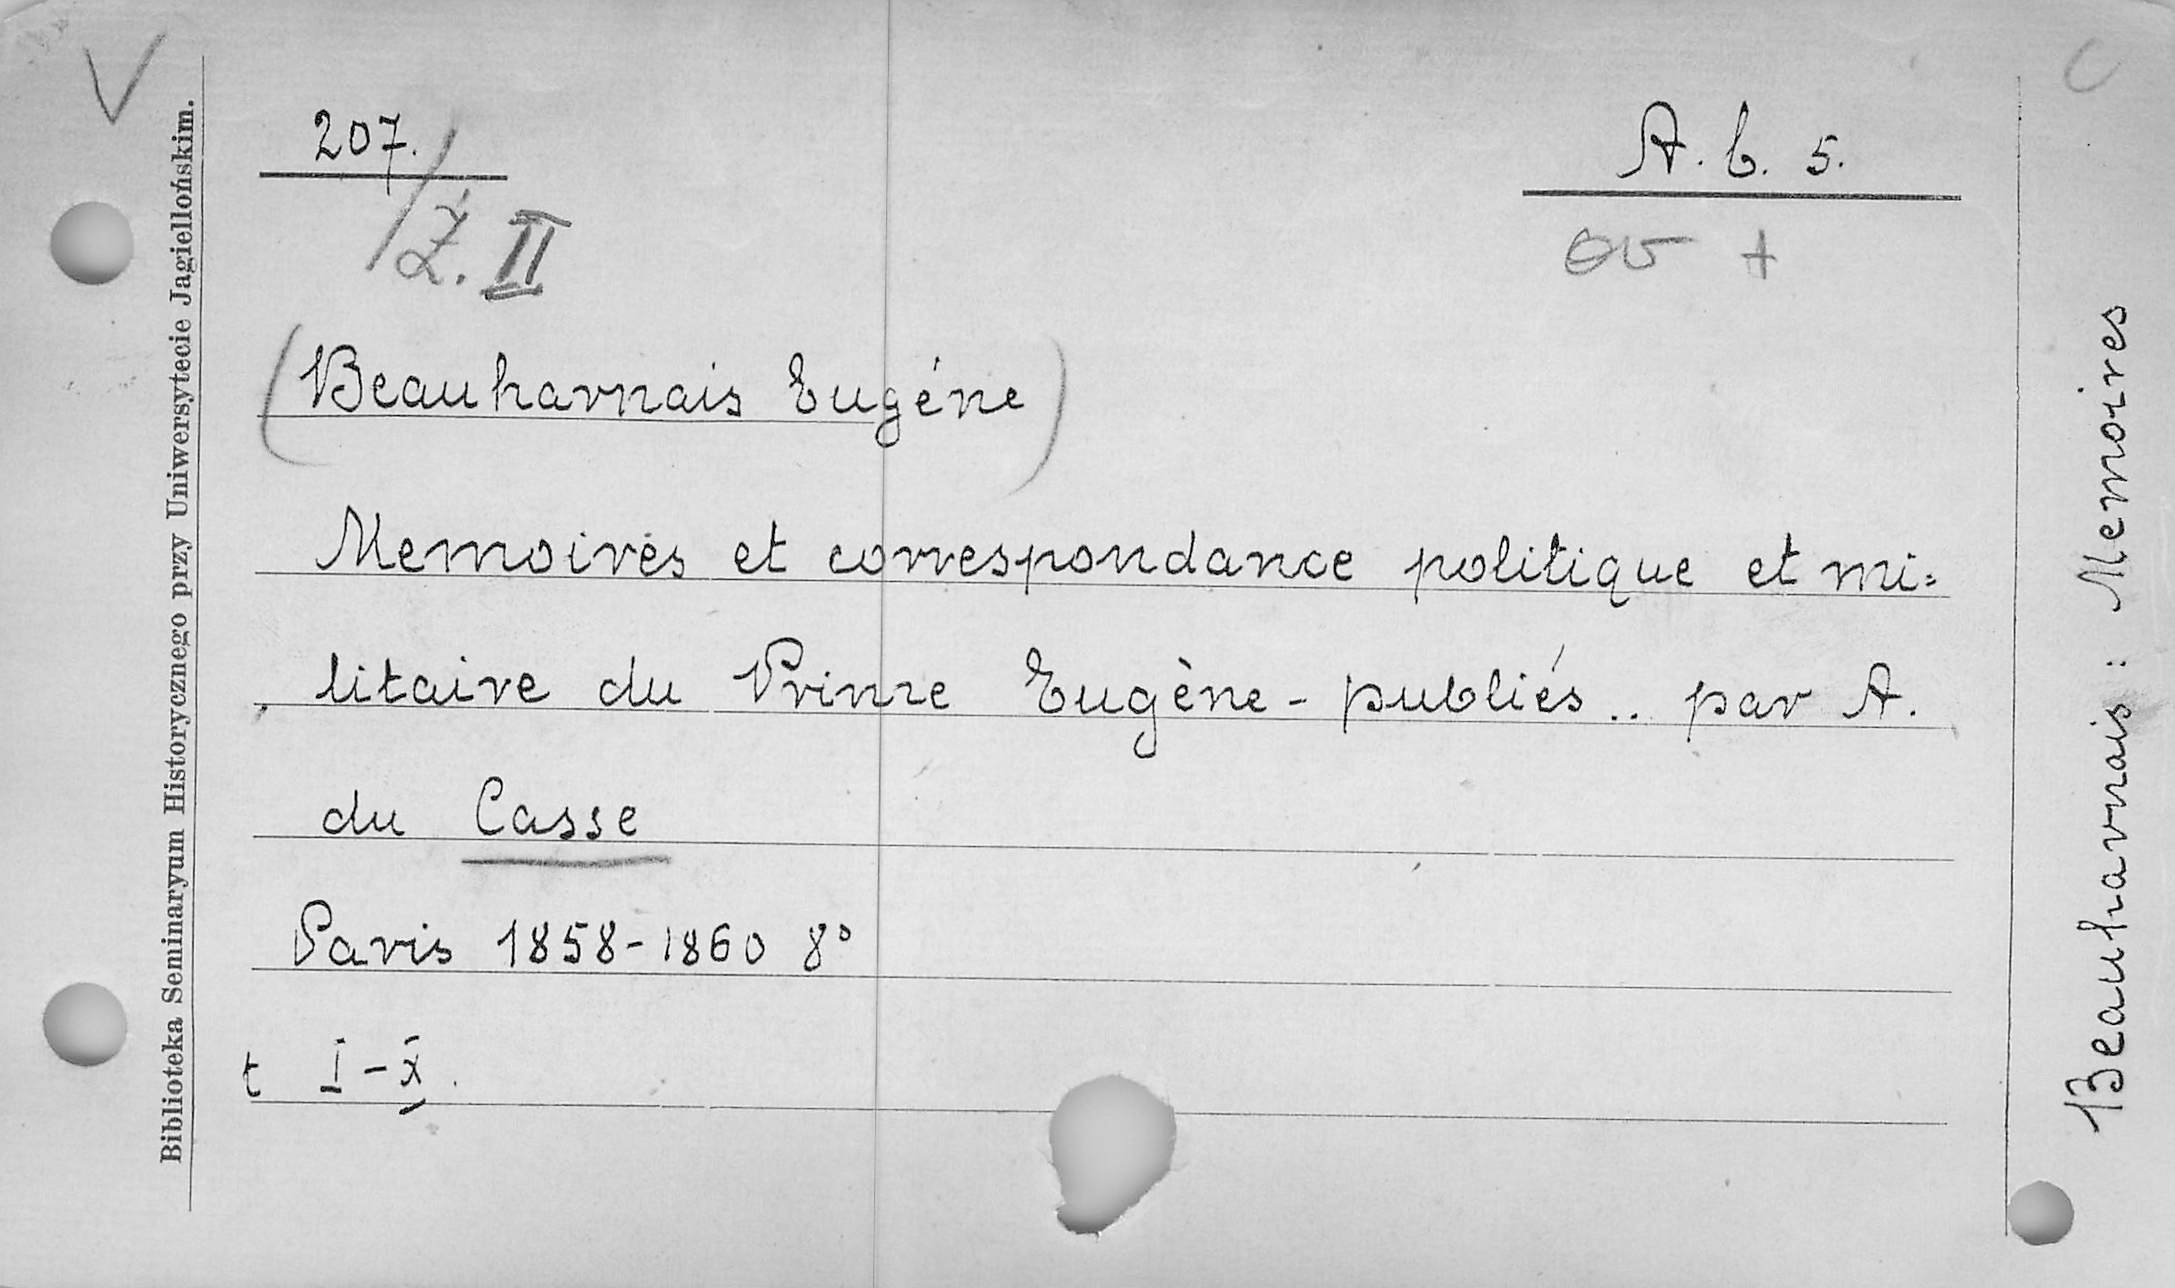 V
207.
A. b. 5.
/Ż. II
(Beauharnais Eugéne)
Memoires et correspondance politique et mi=
litaire du Prince Eugène - publiés .. par A.
du Casse
Paris 1858-1860 8°
t I-X.
Biblioteka Seminaryum Historycznego przy Uniwersytecie Jagiellońskim.
Beauharnais : Memoires